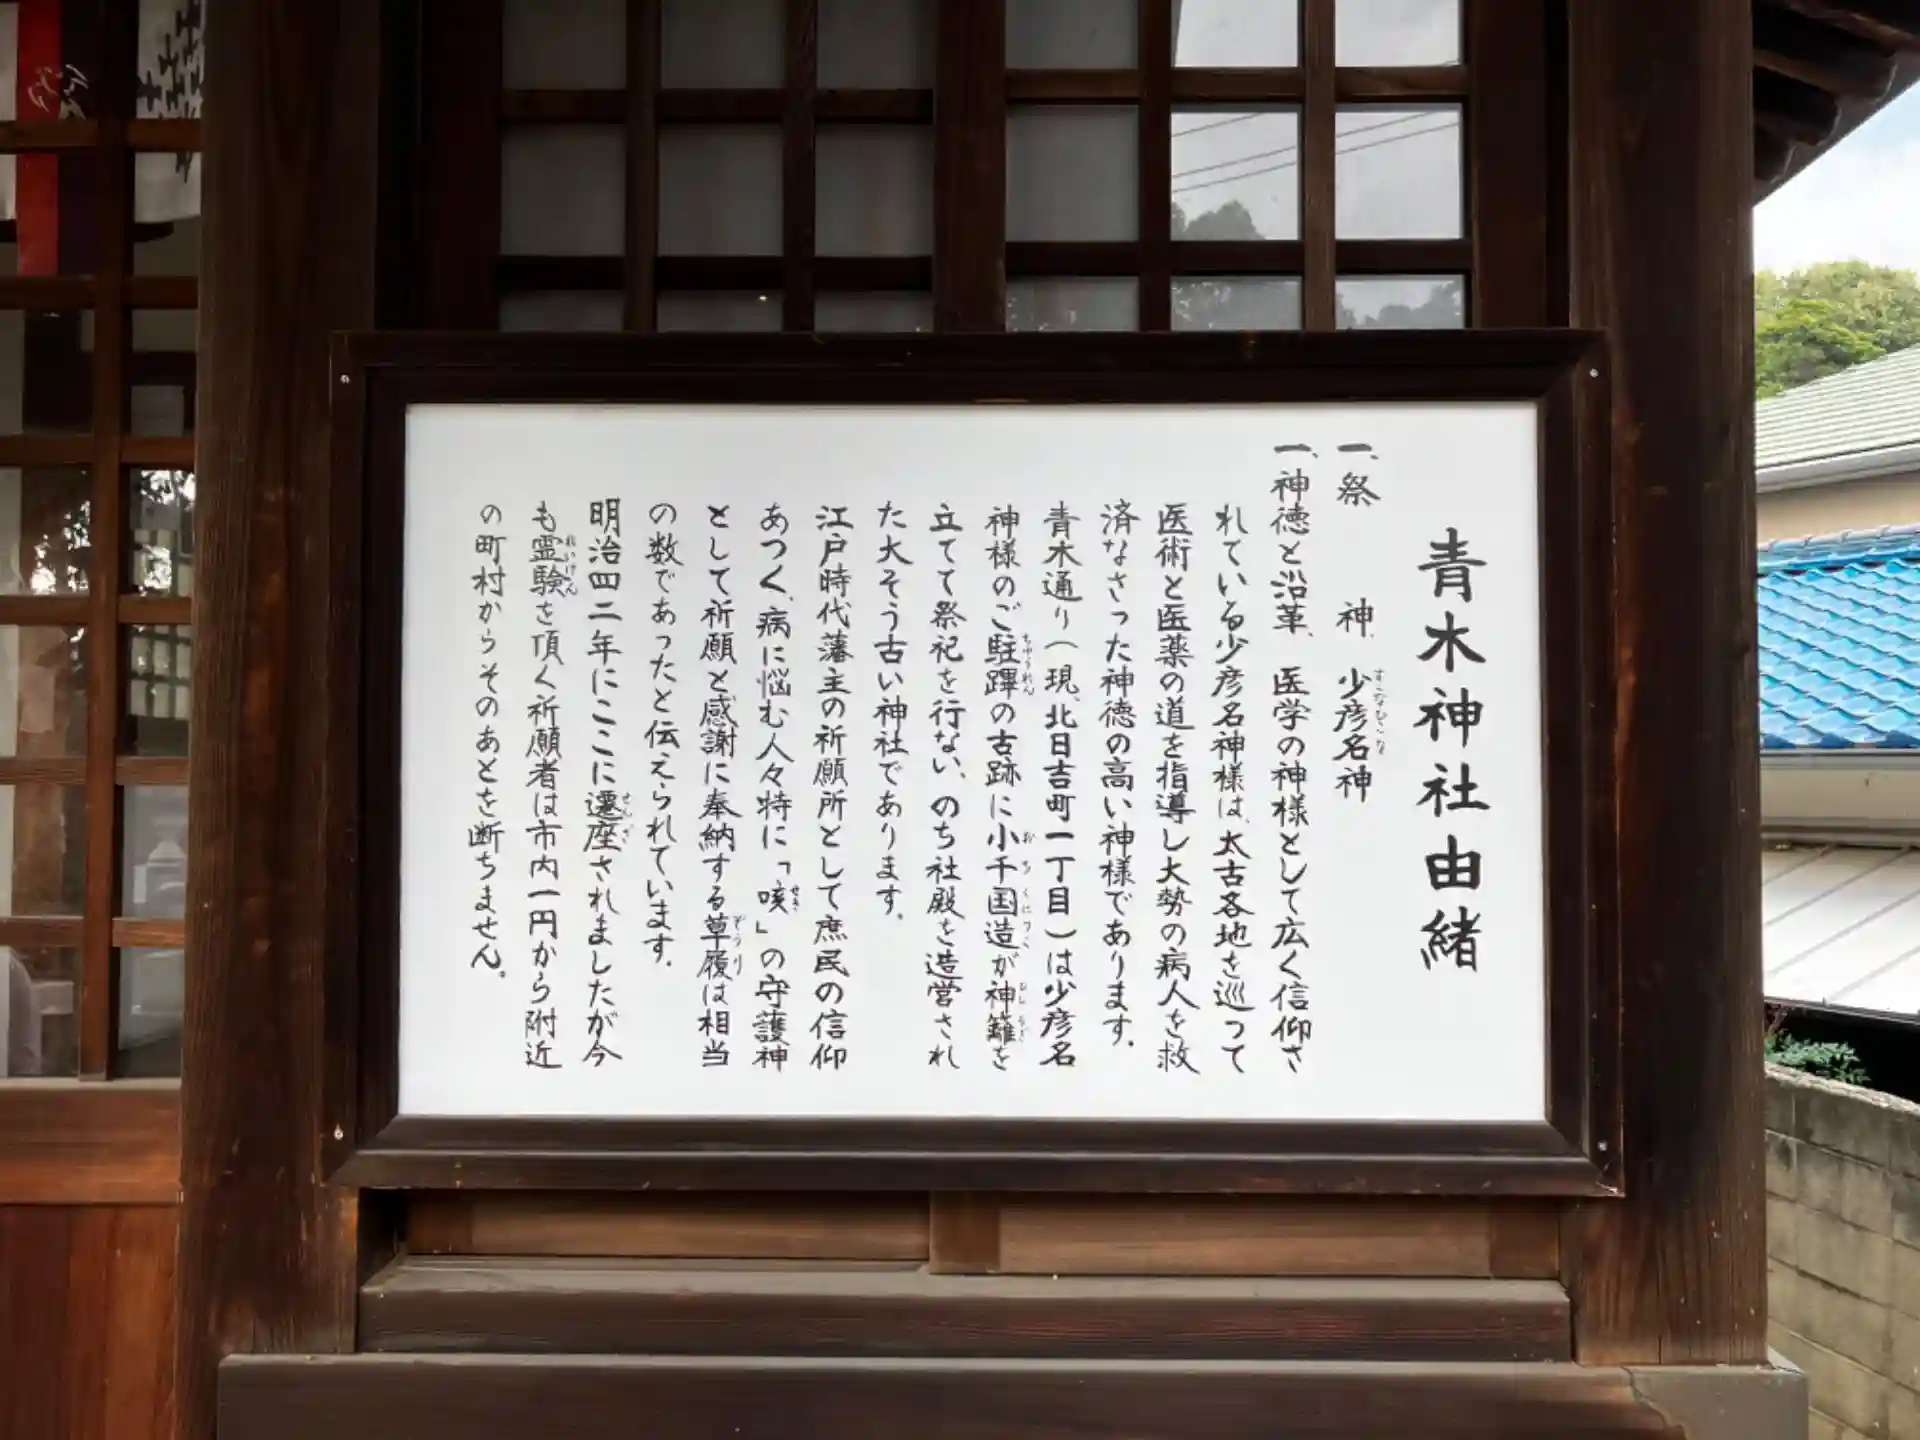 青木神社由緒
一、祭 神、少彦名神
一、神徳と沿革、医学の神様として広く信仰さ
れている少彦名神様は、太古各地を巡って
医術と医薬の道を指導し大勢の病人を救
済なさった神徳の高い神様であります。
青木通り(現、北日吉町一丁目)は少彦名
神様のご駐蹕の古跡に小千国造が神籬を
立てて祭祀を行ない、のち社殿を造営され
た大そう古い神社であります。
江戸時代藩主の祈願所として庶民の信仰
あつく、病に悩む人々特に「咳」の守護神
として祈願と感謝に奉納する草履は相当
の数であったと伝えられています。
明治四二年にここに遷座されましたが今
も霊験を頂く祈願者は市内一円から附近
の町村からそのあとを断ちません。